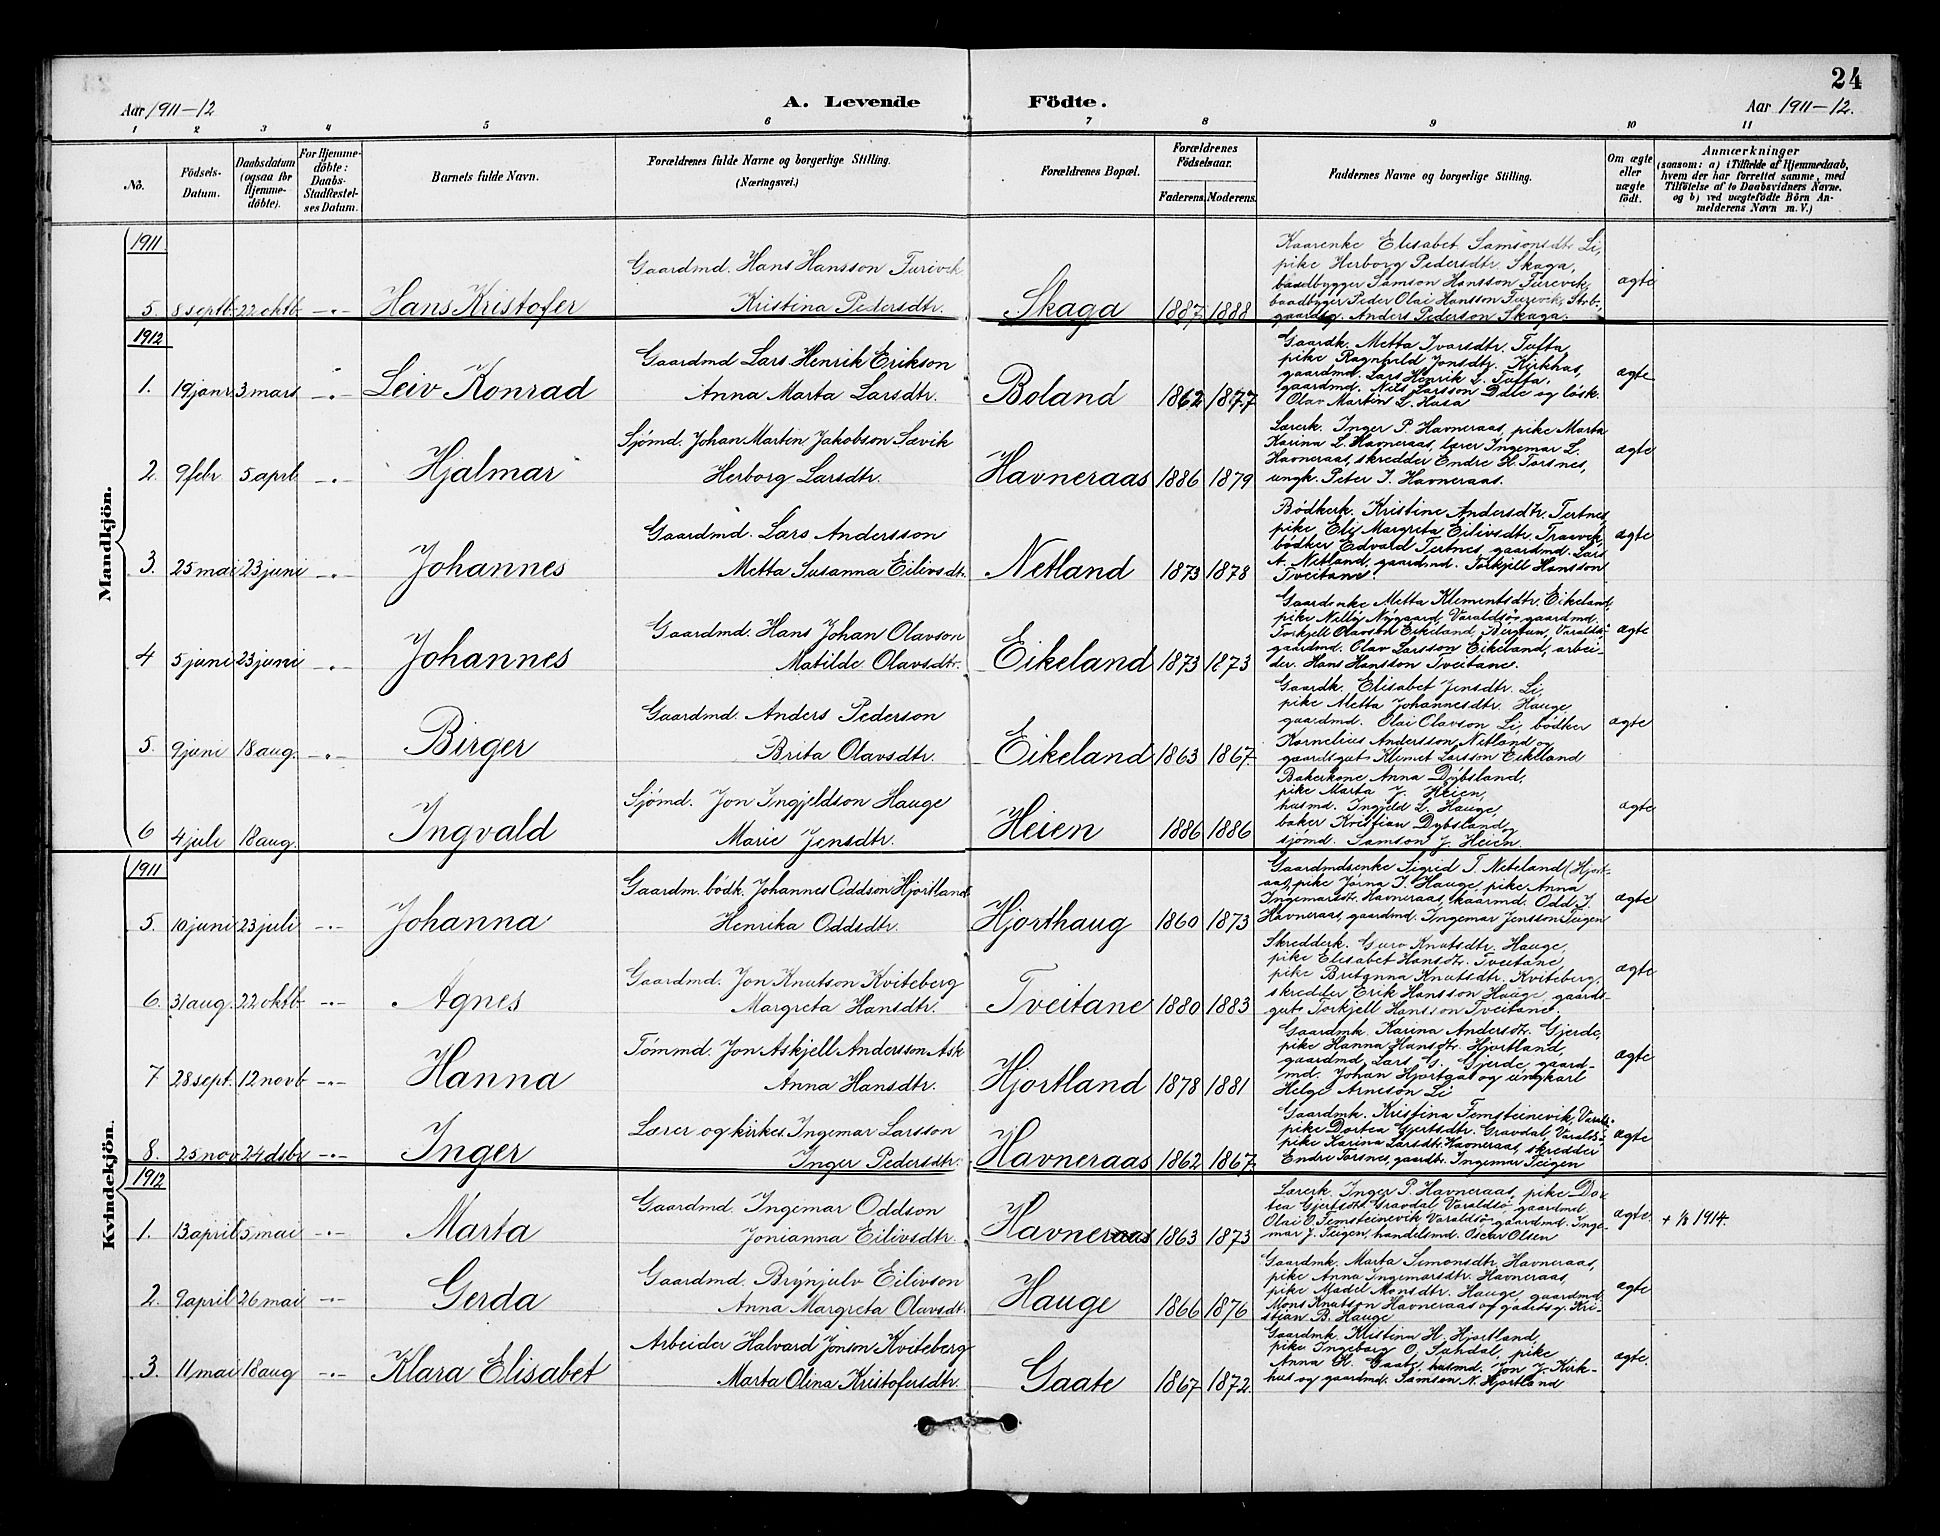 24
Aar 1911-12 A. Levende Födte. Aar 1911-12.
1 2 3 4 5 6 7 8 9 10 11
No.
Födsels-Datum.
Daabsdatum (ogsaa for Hjemme-döbte).
For Hjemme-döbte: Daabs-Stadfæstel-ses Datum.
Barnets fulde Navn.
Forældrenes fulde Navne og borgerlige Stilling. (Næringsvei.)
Forældrenes Bopæl.
Forældrenes Födselsaar.
Faderens. Moderens.
Faddernes Navne og borgerlige Stilling.
Om ægte eller uægte födt.
Anmærkninger
(saasom: a) i Tilfælde af Hjemmedaab,
hvem der har forrettet samme, med
Tilföielse af to Daabsvidners Navne.
og b) ved uægtefödte Börn An-
melderens Navn m. V.)
Mandkjön.
1911
5. 8 septb. 22 oktb. -"- Hans Kristofer Gaardmd. Hans Hansson Furevik Kristina Pedersdtr. Skaga 1887 1888 ægte
Kaarenke Elisabet Samsonsdtr. Li,
pike Herborg Pedersdtr. Skaga,
baadbygger Samson Hansson Furevik,
baadbyger Peder Olai Hansson Furevik,
gaardsg. Anders Pederson Skaga.
1912
1. 19 janr. 3 mars -"- Leiv Konrad Gaardmd Lars Henrik Erikson Anna Marta Larsdtr. Boland 1862 1877 ægte
Gaardk. Metta Ivarsdtr. Tufta,
pike Ragnhild Jonsdtr. Kirkhus,
gaardmd. Lars Henrik L. Tufta.
gaardmd. Nils Larsson Dale og lösk.
Olav Martin L. Husa
2. 9 febr 5 april -"- Hjalmar Sjömd. Johan Martin Jakobson Sævik Herborg Larsdtr. Havneraas 1886 1879 ægte
Lærerk. Inger P. Havneraas, pike Marta
Karina L. Havneraas, lærer Ingemar L.
Havneraas, skredder Endre H. Torsnes,
ungk. Peter I. Havneraas.
3. 25 mai 23 juni -"- Johannes Gaardmd. Lars Andersson Metta Susanna Eilivsdtr. Netland 1873 1878 ægte
Bödkerk. Kristine Andersdtr. Tertnes,
pike Eli Margreta Eilivsdtr. Traavik,
bödker Edvard Tertnes, gaardmd. Lars
A. Netland, gaardmd. Torkjell Hansson
Tveitane.
4 5 juni 23 juni -"- Johannes Gaardmd. Hans Johan Olavson Matilde Olavsdtr. Eikeland 1873 1873 ægte
Gaardenke Metta Klementsdtr. Eikeland,
pike Nygaard, Varaldsö, gaardmd.
Torkjell Olavson Eikeland, Bergtun, Varaldsö
gaardmd. Olav Larsson Eikeland, arbei-
der. Hans Hansson Tveitane.
5. 9 juni 18 aug. -"- Birger Gaardmd. Anders Pederson Brita Olavsdtr. Eikeland 1863 1867 ægte
Gaardk. Elisabet Jensdtr. Li,
pike Metta Johannesdtr. Hauge,
gaardmd. Olai Olavson Li, bödker
Kornelius Andersson Netland og
gaardsgut Klemet Larsson Eikeland
6 4 juli 18 aug. Ingvald Sjömd. Jon Ingjeldson Hauge Marie Jensdtr. Heien 1886 1886 ægte
Bakerkone Anna Dybsland,
pike Marta J. Heien,
husmd. Ingjeld L. Hauge,
baker Kristian Dybsland og
sjömd. Samson J. Heien.
Kvindekjön.
1911
5. 10 juni 23 juli -"- Johanna Gaardm. bödk. Johannes Oddson Hjortland Henrika Oddsdtr. Hjorthaug 1860 1873 ægte
Gaardmdsenke Sigrid T. Neteland (Hjort-
aas, pike Jörna I. Hauge, pike Anna
Ingemarsdtr. Havneraas, skaarmd. Odd I.
Havneraas, gaardmd. Ingemar Jensson Teigen
6. 31 aug. 22 oktb. -"- Agnes Gaardmd. Jon Knutson Kviteberg Margreta Hansdtr. Tveitane 1880 1883 ægte
Skredderk. Guro Knutsdtr. Hauge,
pike Elisabet Hansdtr. Tveitane,
pike Britanna Knutsdtr. Kviteberg,
skredder Erik Hansson Hauge, gaards-
gut Torkjell Hansson Tveitane.
7 28 sept. 12 novb -"- Hanna Tömmd. Jon Askjell Andersson Ask Anna Hansdtr. Hjortland 1878 1881 ægte
Gaardmk. Karina Andersdtr. Gjerde,
pike Hanna Hansdtr. Hjortland,
gaardmd. Lars G. Gjerde, gaard-
md. Johan og ungkarl
Helge Arneson Li
8. 25 nov 24 dsbr -"- Inger Lærer og kirkes. Ingemar Larsson Inger Pedersdtr. Havneraas 1862 1867 ægte
Gaardmk. Kristina Femsteinevik, Varalds-
pike Dortea Gjertsdtr. Gravdal, Varaldsö,
pike Karina Larsdtr. Havneraas, skredder
Endre Torsnes, gaardtr. Ingemar Teigen
1912
1. 13 april 5 mai -"- Marta Gaardmd. Ingemar Oddson Jonianna Eilivsdtr. Havneraas 1863 1873 ægte + 1/8 1914.
Lærerk. Inger P. Havneraas, pike Dor-
tea Gjertsdtr. Gravdal Varaldsö, gaardmd.
Olai O. Femsteinevik Varaldsö gaardmd. Inge-
mar J. Teigen, handelsmd. Oscar Olsen
2. 9 april 26 mai -"- Gerda Gaardmd. Brynjulv Eilivson Anna Margreta Olavsdt. Hauge 1866 1876 ægte
Gaardmk. Marta Simonsdtr. Havneraas,
pike Anna Ingemarsdtr. Havneraas,
pike Madel Monsdtr. Hauge, gaardmd.
Mons Knutson Havneraas og gaardsg. Kri-
stian B. Hauge
3. 11 mai 18 aug -"- Klara Elisabet Arbeider Halvard Jonson Kviteberg Marta Olina Kristofersdtr. Gaate 1867 1872 ægte.
Gaardmk. Kristina H. Hjortland,
pike Ingeborg O. Suhdal, pike
Anna H. Gaate, husmd. Jon J. Kirk-
hus og gaardmd. Samson N. Hjortland